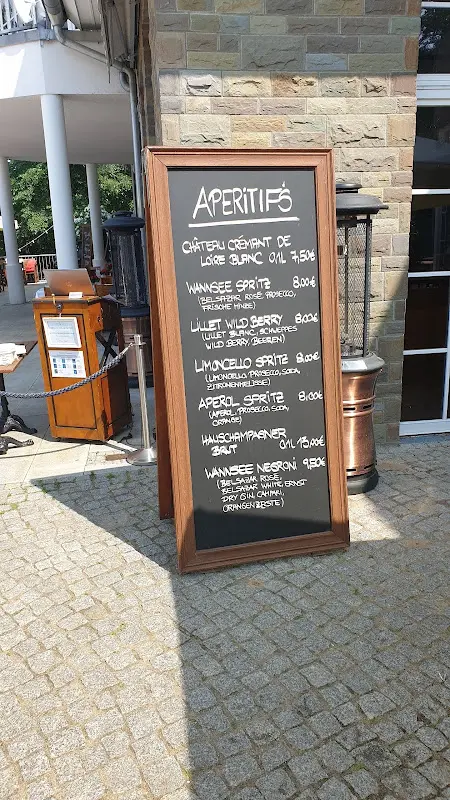 APERITIF'S
CHÂTEAU CRÉMANT DE
LOIRE BLANC 0,1L 7,50€
WANNSEE SPRITZ 8,00€
(BELSAZAR ROSÉ, PROSECCO,
FRISCHE MINZE)
LILLET WILD BERRY 8,00€
(LILLET BLANC, SCHWEPPES
WILD BERRY, BEEREN)
LIMONCELLO SPRITZ 8,00€
(LIMONCELLO, PROSECCO, SODA,
ZITRONENMELISSE)
APEROL SPRITZ 8,00€
(APEROL, PROSECCO, SODA,
ORANGE)
HAUSCHAMPAGNER
BRUT 0,1L 13,00€
WANNSEE NEGRONI 9,50€
(BELSAZAR ROSÉ,
BELSAZAR WHITE, ERNST
DRY GIN, CAMPARI,
ORANGENZESTE)